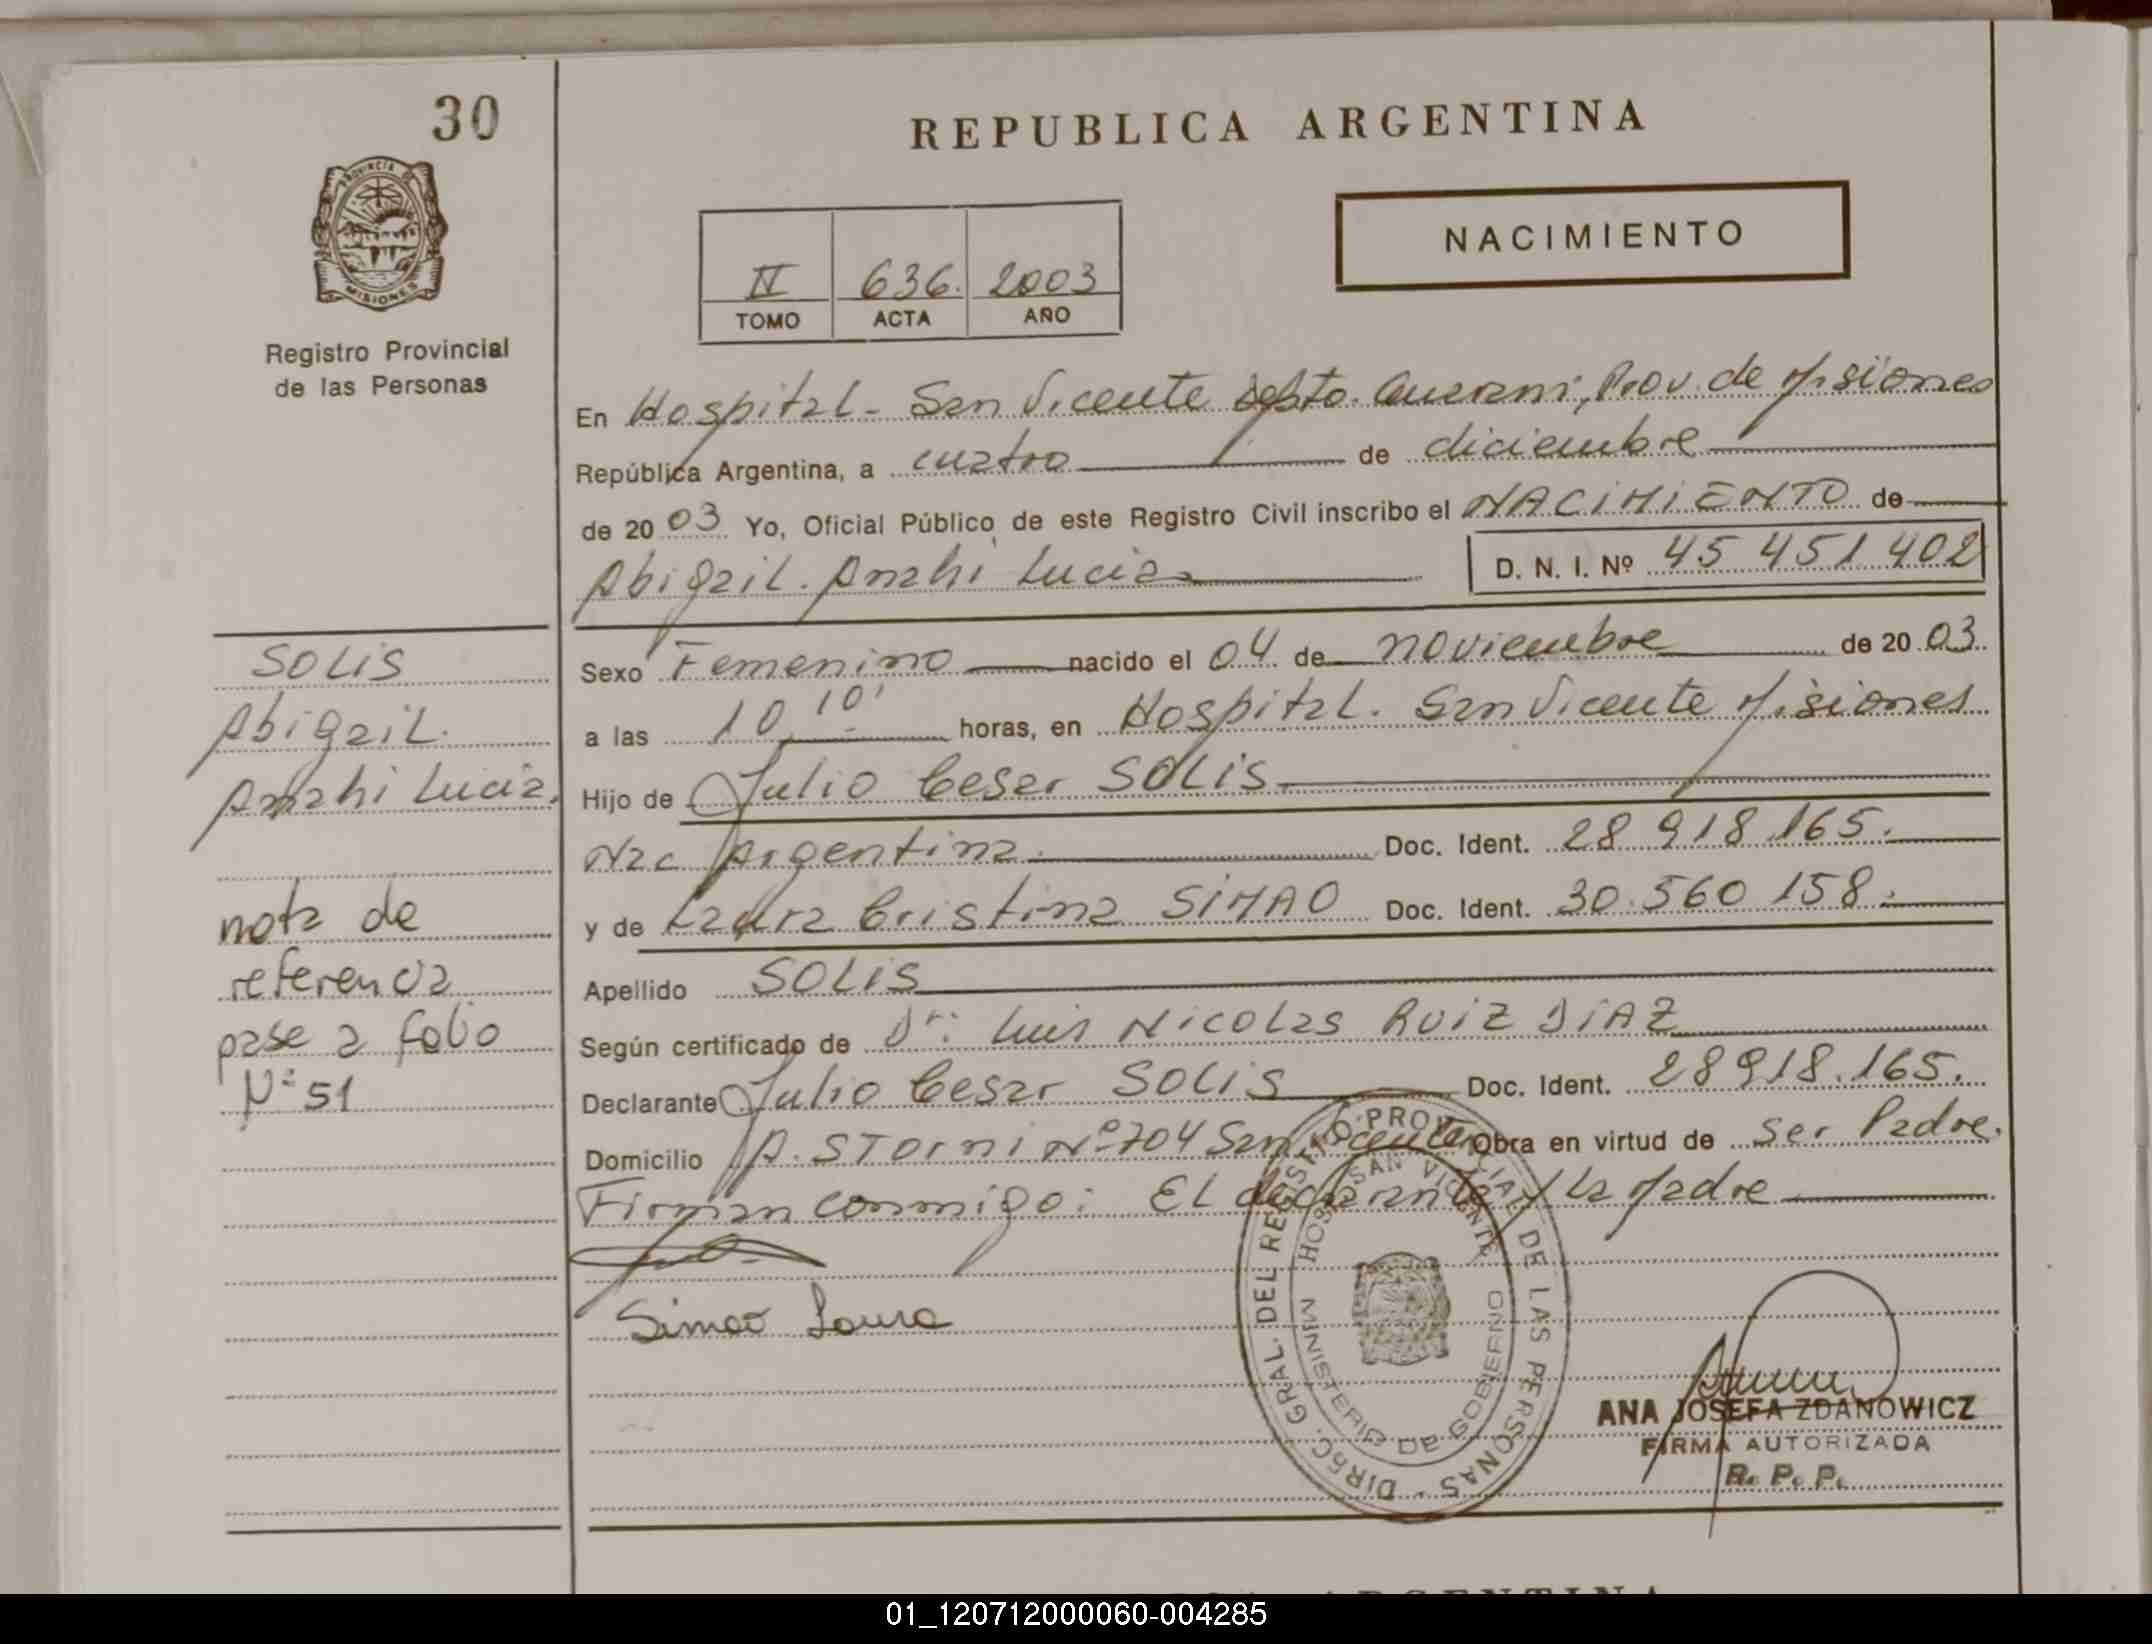 30
REPUBLICA ARGENTINA
PROVINCIA DE
MISIONES
Registro Provincial
de las Personas
NACIMIENTO
II 636. 2003
TOMO ACTA AÑO
En Hospital - San Vicente Depto. Guarani, Prov. de Misiones
República Argentina, a cuatro de diciembre
de 2003 Yo, Oficial Público de este Registro Civil inscribo el NACIMIENTO de
Abigail. Anahi Lucia
D. N. I. Nº 45 451 402
Sexo Femenino nacido el 04 de noviembre de 2003.
a las 10,10' horas, en Hospital. San Vicente Misiones
Hijo de Julio Cesar SOLIS
Nac Argentina. Doc. Ident. 28 918.165.
y de Laura Cristina SIMAO Doc. Ident. 30.560 158.
Apellido SOLIS
Según certificado de Dr: Luis Nicolas RUIZ DIAZ
Declarante Julio Cesar SOLIS Doc. Ident. 28918.165.
Domicilio A. STorni Nº 704 San Vicente Obra en virtud de ser Padre.
Firman conmigo: El declarante y la Madre
Simao Laura
SOLIS
Abigail.
Anahi Lucia.
nota de
referencia
pase a folio
Nº 51
DIREC. GRAL. DEL REGISTRO PROVINCIAL DE LAS PERSONAS -
HOSP. SAN VICENTE
MINISTERIO DE GOBIERNO
ANA JOSEFA ZDANOWICZ
FIRMA AUTORIZADA
R. P. P.
ARGENTINA
01_120712000060-004285